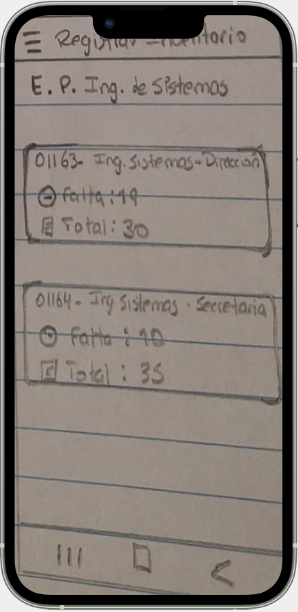 Registrar Inventario
E. P. Ing. de Sistemas
01163- Ing. Sistemas - Dirección
Falta: 19
Total: 30
01164 - Ing Sistemas - Secretaria
Falta : 10
Total : 35